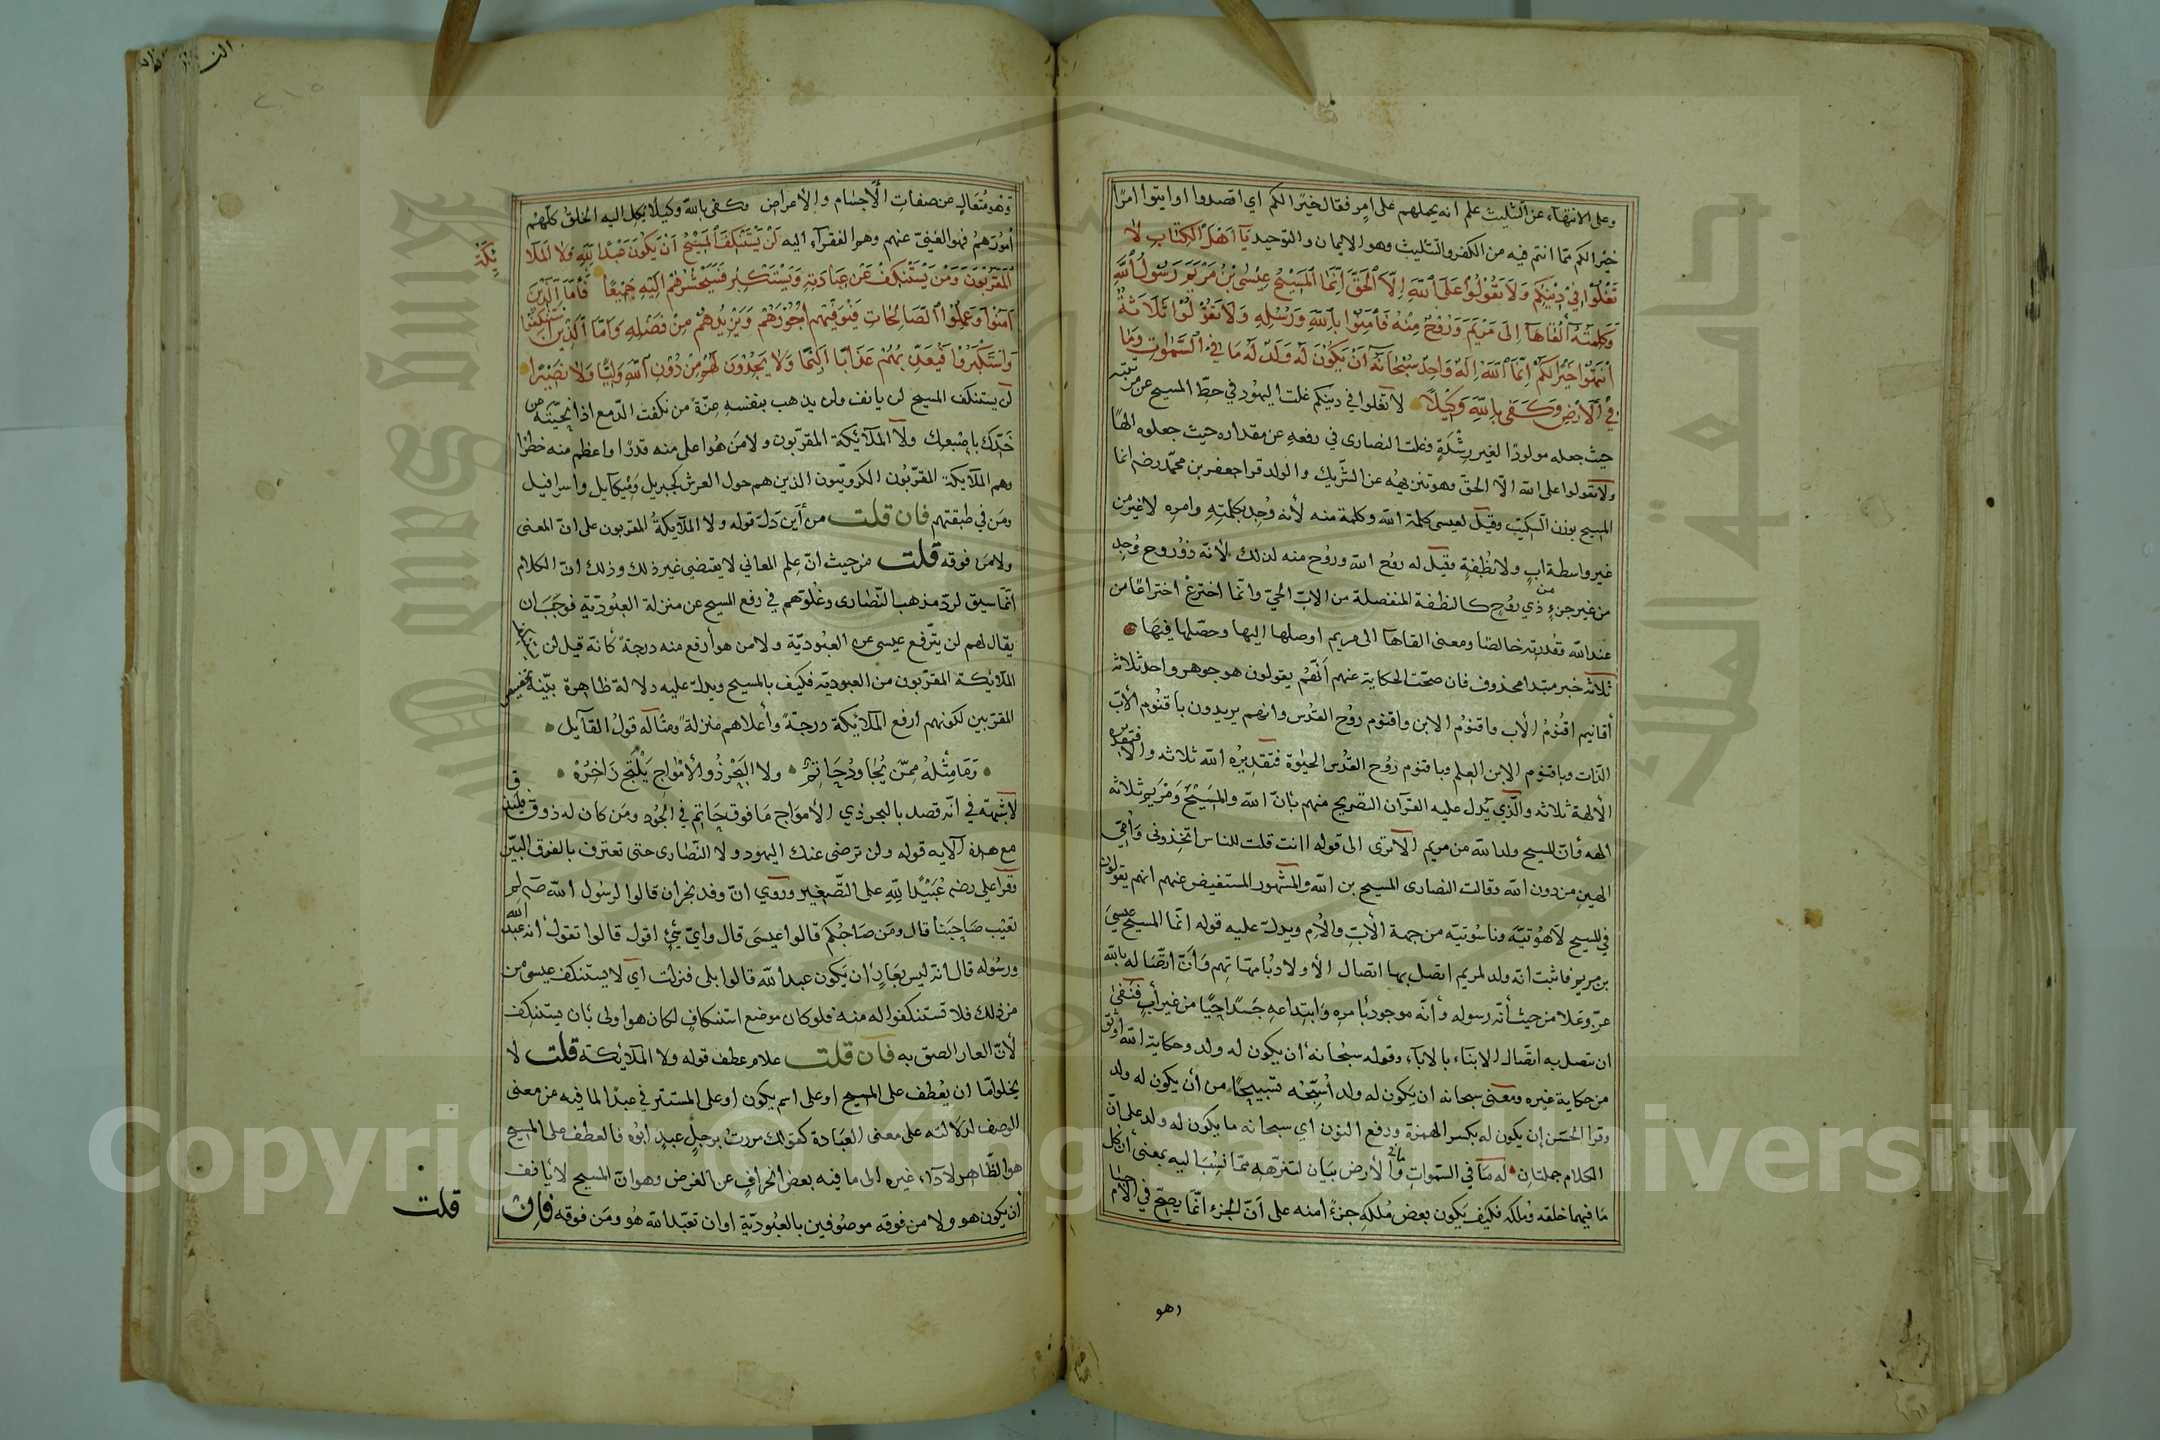 وعلى الانتهاء عن التثليث علم انه يحملهم على امر فقال خيرا لكم اي اقصدوا او ايتوا امرًا
خيرًا لكم ممّا انتم فيه من الكفر والتثليث وهو الايمان والتوحيد يَآ اَهْلَ الْكِتَابِ لا
تَغْلُوْا فِيْ دِيْنِكُم وَلَا تَقُوْلُوْا عَلَى اللهِ اِلَّا الْحَقَّ اِنَّمَا الْمَسِيْحُ عِيْسَى بْنُ مَرْيَمَ رَسُوْلُ اللهِ
وَكَلِمَتُهُ اَلْقَاهَآ اِلَى مَرْيَمَ وَرُوْحٌ مِنْهُ فَآمِنُوا بِاللهِ وَرُسُلِهِ وَلَا تَقُوْلُوْا ثَلَاثَةٌ
اِنْتَهُوْا خَيْرًا لَكُمْ اِنَّمَا اللهُ اِلَهٌ وَاحِدٌ سُبْحَانَهُ اَنْ يَكُوْنَ لَهُ وَلَدٌ لَهُ مَا فِي السَّمٰوَاتِ وَمَا
فِي الْاَرْضِ وَكَفَى بِاللهِ وَكِيْلًا لا تغلوا في دينكم غلت اليهود في حطّ المسيح عن منزلته
حيث جعله مولودًا لغير رِشْدَةٍ وغلت النصارى في رفعه عن مقداره حيث جعلوه الهًا
ولا تقولوا على الله الّا الحقّ وهو تنزيهه عن الشّريك والولد قرا جعفر بن محمّد رضه انما
المسيح بوزن السكّيت وقيل لعيسى كلمة الله وكلمة منه لأنه وُجد بكلمتِهِ وامره لا غير من
غير واسطة ابٍ ولا نُطْفةٍ وقيل له رُوح الله ورُوح منه لذلك لأنّه ذو روح وُجِد
من غير جزءٍ من ذي روح كالنطفة المنفصلة من الاب الحيّ وانّما اخترعْ اختراعًا من
عند الله وقُدرته خالصًا ومعنى القاهآ الى مريم اوصلها اليها وحصّلها فيهَا
ثلاثة خبر مبتدا محذوف فان صحّت الحكاية عنهم أنّهُم يقولون هو جوهر واحد ثلاثة
أقانيم اقنُومُ الأب واقنُوم الابن واقنوم رُوح القُدُس وانهم يريدون باقنُوم الأبّ
الذّات وباقنوم الابن العِلم وباقنوم رُوح القدُس الحيٰوة فتقديرُه الله ثلاثة والّا فتقديره
الألهة ثلاثة والّذي يَدل عليه القرآن التصريح منهم بأنّ الله والمَسِيْحَ وَمَرْيَمَ ثلاثة
الهة وَأنّ المسيح ولد الله من مريم الاترى الى قوله اانت قلت للناس اتخِذوني وَاُمّيَ
الهين من دون الله وقالت النصارى المسيح بن الله والمشهُور المستفيض عنهم انهم يقولون
في المسيح لاهُوتيّه وناسُوتيّه من جهة الأبّ والأم ويدلّ عليه قوله انّما المسيح عيسى
بن مريم فاثبت انّه ولد لمريم اتصل بها اتصال الأولاد بأمّهاتهم وَأنّ اتّصَاله بالله
عزّ وعَلا من حيث أنّه رسوله وأنّه موجود بأمرِه وَابتداعِهِ جَسَدًا حيًّا من غير أبٍ فَنَفٰى
ان يتصل به اتّصال الابناء بالاباء، وقوله سبحانه أن يكون له ولد وحكاية الله أوثق
من حكاية غيره ومعنى سبحانه ان يكون له ولد أُسبّحُه تسبيحًا من أن يكون له ولد
وقرا الحسَن إن يكون له بكسر الهمزة ورفع النون اي سبحانه ما يكون له ولد على انّ
الكلام جملتان له مَا في السّموات وَمَا في الأرض بيَان لتنزّهه ممّا نسُبَ اليه بمعنى أن كل
مَا فيهما خلقه ومُلكه فكيف يَكون بعض مُلكهِ جزءًا منه على أنّ الجزء انّمَا يصحّ في الأجسام
وهو
وَهُو مُتَعَالٍ عن صفاتِ الأَجسَام والأعراض وكفى بالله وكيلًا يَكِل اليه الخلقُ كلّهُم
اُمُورَهمُ فهو الغنيّ عنهم وهم الفقرآء اليه لَنْ يَسْتَنْكِفَ الْمَسِيْحُ اَنْ يَكُوْنَ عَبْدًا لِلّٰهِ وَلَا الْمَلَا
ئِكَةُ
الْمُقَرَّبُوْنَ وَمَنْ يَسْتَنْكِفْ عَنْ عِبَادَتِهِ وَيَسْتَكْبِرْ فَسَيَحْشُرُهُمْ اِلَيْهِ جَمِيْعًا فَأَمَّا الَّذِيْنَ
اٰمَنُوْا وَعَمِلُوا الصَّالِحَاتِ فَيُوَفِّيْهِمْ اُجُوْرَهُمْ وَيَزِيْدُهُمْ مِنْ فَضْلِهِ وَاَمَّا الَّذِيْنَ اسْتَنْكَفُوْا
وَاسْتَكْبَرُوْا فَيُعَذِّبُهُمْ عَذَابًا اَلِيْمًا وَلَا يَجِدُوْنَ لَهُمْ مِنْ دُوْنِ اللهِ وَلِيًّا وَلَا نَصِيْرًا
لن يستنكف المسيح لن يانف ولن يذهب بنفسهِ عِزّةً من نكفت الدّمع اذا نحّيته عن
خَدّك باصبعك ولا الملآئكة المقرّبون ولا مَن هُوا على منه قدرًا واعظم منه خطرًا
وهم الملآيكة المقرّبُون الكروبيّون الذين هم حول العرش كجبريل وميكآيل واسرافيل
ومَن في طبقتهم فان قلت من أين دَلّ قوله ولا الملآيكةُ المقربون على انّ المعنى
ولا مَن فوقه قلت من حيث انّ علم المعاني لا يقتضي غير ذلك وذلك انّ الكلام
انّما سيق لردّ مذهب النّصارى وغُلوّهم في رفع المسيح عن منزلة العبُوديّة فوجَبَ ان
يقال لهم لن يترفع عيسى عن العبُوديّة ولا من هو أرفع منه درجةً كأنّه قيل لن
الملائكة المقرّبون من العبودية فكيف بالمسيح ويدلّ عليه دلالة ظاهرة بيّنة تخصيص
المقرّبين لكونهم ارفع الملائكة درجةً وأعلاهم منزلةً ومثاله قولُ القآيل
وَمَا مِثْلُهُ مِمَّن يُجَاوِدُ حَاتِمٌ ولا البَحْر ذُو الأمْوَاجِ يَلْتَجّ زَاخِرُهْ
لا شبهة في انّه قصد بالبحر ذي الأموَاج مَا فوق حَاتِم في الجُود ومَن كان له ذوق فليذق
مع هذه الآيه قوله ولن ترضى عنك اليهود ولا النّصارى حتى تعترف بالفرق البيّن
وقرا علي رضه عُبَيْدًا لِلّهِ على التّصغير ورُوي انّ وفد نجران قالوا لرسُول الله صلم لِم
تعيْب صَاحِبَنا قال ومَن صَاحبُكم قالوا عيسَى قال وايّ شئ اقول قالوا تقول أنه عبد الله
ورسُوله قال انّه ليس بعَارٍ أن يَكون عبد الله قالوا بلى فنزلت اي لا يستنكف عيسى من
من ذلك فلا تستنكفوا له منه فلو كان موضع استنكافٍ لكان هو اولى بأن يستنكِف
لأنّ العار الصق به فان قلت علام عطف قوله ولا الملآئكة قلت لا
يخلو امّا ان يُعْطف على المسيح او على اسم يكون او على المستتر في عبدًا لما فيه من معنى
الوصف لدَلالته على معنى العبَادة كقولك مررت برجلٍ عبدٍ ابُوه فالعطف على المسيح
هو الظّاهر لادآء غيره الى ما فيه بعض انحرافٍ عن الغرض وهو انّ المسيح لا يأنف
أن يكون هو ولا من فوقه موصُوفين بالعبُوديّة او ان تعبّد الله هُو ومَن فوقه فان
قلت
Copyright © King Saud University
King Saud University
جامعة الملك سعود